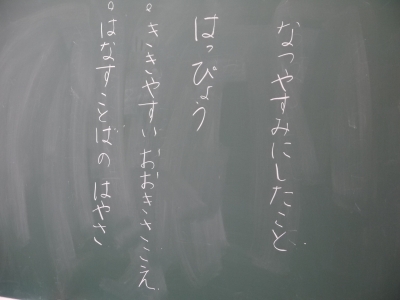 なつやすみにしたこと
はっぴょう
。ききやすい おおきさこえ
。はなすことばの はやさ